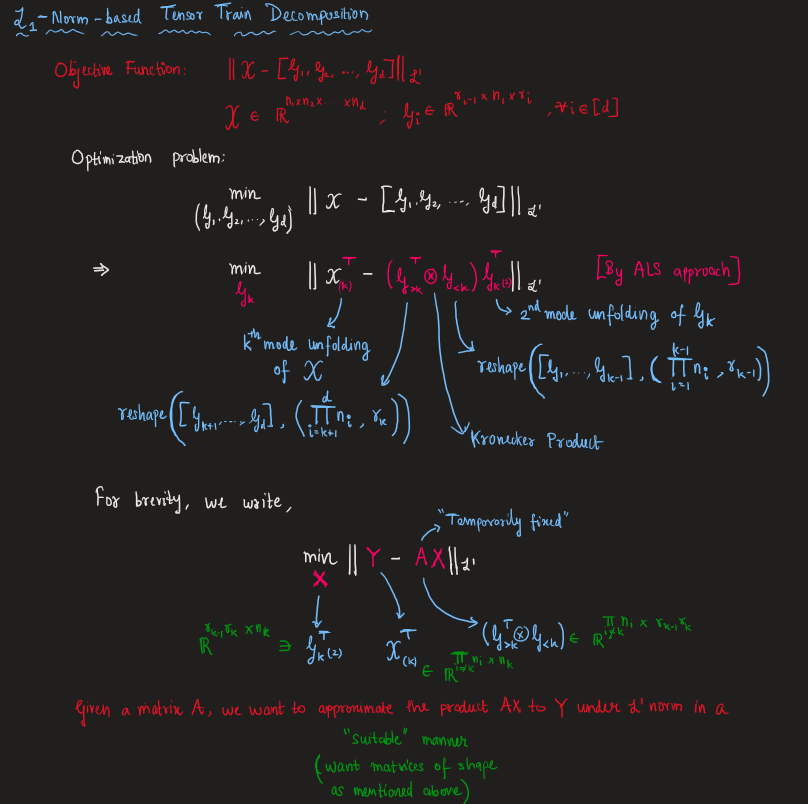 ℒ₁-Norm-based Tensor Train Decomposition
Objective Function: ‖ 𝒳 - [𝒢₁, 𝒢₂, ..., 𝒢_d] ‖_ℒ¹
𝒳 ∈ ℝ^{n₁×n₂×....×n_d} ; 𝒢ᵢ ∈ ℝ^{r_{i-1} × nᵢ × rᵢ} , ∀ i ∈ [d]
Optimization problem:
min_{(𝒢₁, 𝒢₂, ..., 𝒢_d)} ‖ 𝒳 - [𝒢₁, 𝒢₂, ..., 𝒢_d] ‖_ℒ¹
⇒ min_{𝒢_k} ‖ 𝒳_{(k)}^T - (𝒢_{>k}^T ⊗ 𝒢_{<k}) 𝒢_{k(2)}^T ‖_ℒ¹ [By ALS approach]
2^{nd} mode unfolding of 𝒢_k
k^{th} mode unfolding
of 𝒳
reshape([𝒢₁, ..., 𝒢_{k-1}], (∏_{i=1}^{k-1} nᵢ, r_{k-1}))
reshape([𝒢_{k+1}, ..., 𝒢_d], (∏_{i=k+1}^{d} nᵢ, r_k))
Kronecker Product
For brevity, we write,
"Temporarily fixed"
min_X ‖ Y - AX ‖_ℒ¹
ℝ^{r_{k-1}r_k × n_k} ∋ 𝒢_{k(2)}^T
𝒳_{(k)}^T ∈ ℝ^{∏_{i≠k} nᵢ × n_k}
(𝒢_{>k}^T ⊗ 𝒢_{<k}) ∈ ℝ^{∏_{i≠k} nᵢ × r_{k-1}r_k}
Given a matrix A, we want to approximate the product AX to Y under ℒ¹ norm in a
"suitable" manner
(want matrices of shape
as mentioned above)